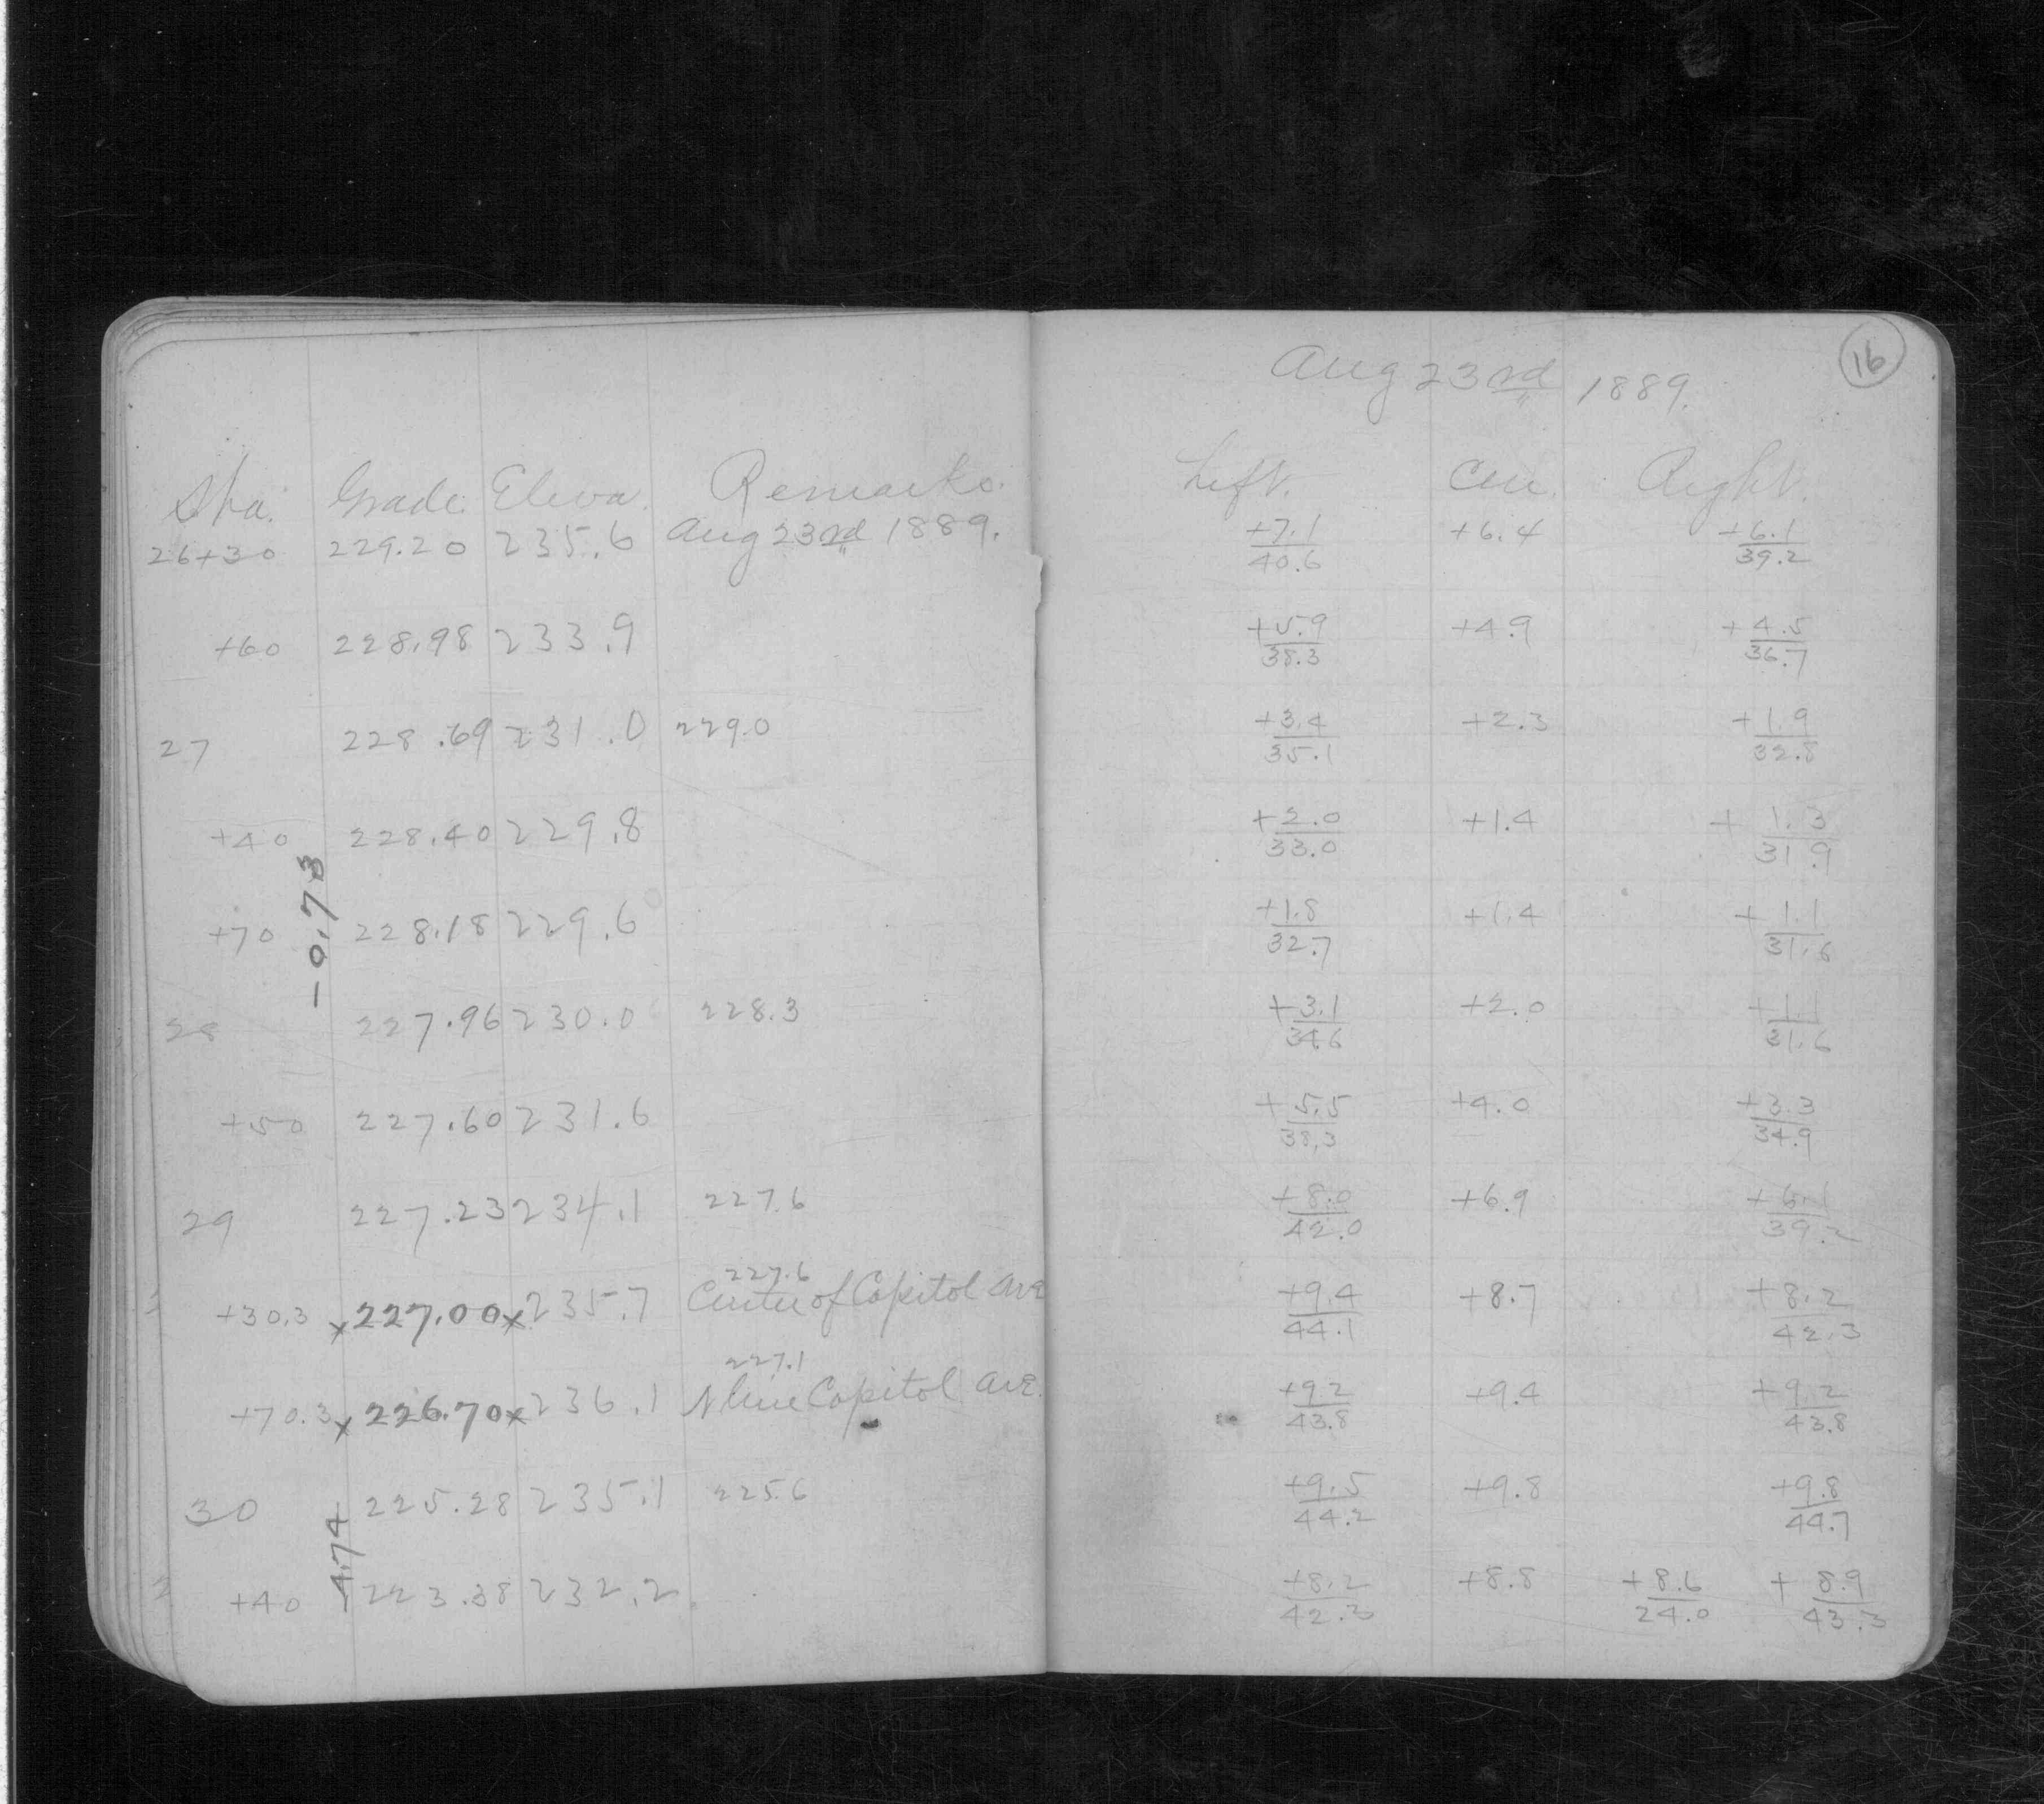 Sta. Grade. Eleva. Remarks.
26+30 229.20 235.6 Aug 23rd 1889.
+60 228.98 233.9
27 228.69 231.0 229.0
+40 228.40 229.8
-0.73
+70 228.18 229.6
28 227.96 230.0 228.3
+50 227.60 231.6
29 227.23 234.1 227.6
227.6
+30.3 x 227.00 x 235.7 Center of Capitol Ave
227.1
+70.3 x 226.70 x 236.1 N line Capitol Ave.
30 225.28 235.1 225.6
-4.74
+40 223.38 232.2
16
Aug 23rd 1889.
Left. Cen. Right.
+7.1 +6.4 +6.1
40.6 39.2
+5.9 +4.9 +4.5
38.3 36.7
+3.4 +2.3 +1.9
35.1 32.8
+2.0 +1.4 +1.3
33.0 31.9
+1.8 +1.4 +1.1
32.7 31.6
+3.1 +2.0 +1.1
34.6 31.6
+5.5 +4.0 +3.3
38.3 34.9
+8.0 +6.9 +6.1
42.0 39.2
+9.4 +8.7 +8.2
44.1 42.3
+9.2 +9.4 +9.2
43.8 43.8
+9.5 +9.8 +9.8
44.2 44.7
+8.2 +8.8 +8.6 +8.9
42.3 24.0 43.3